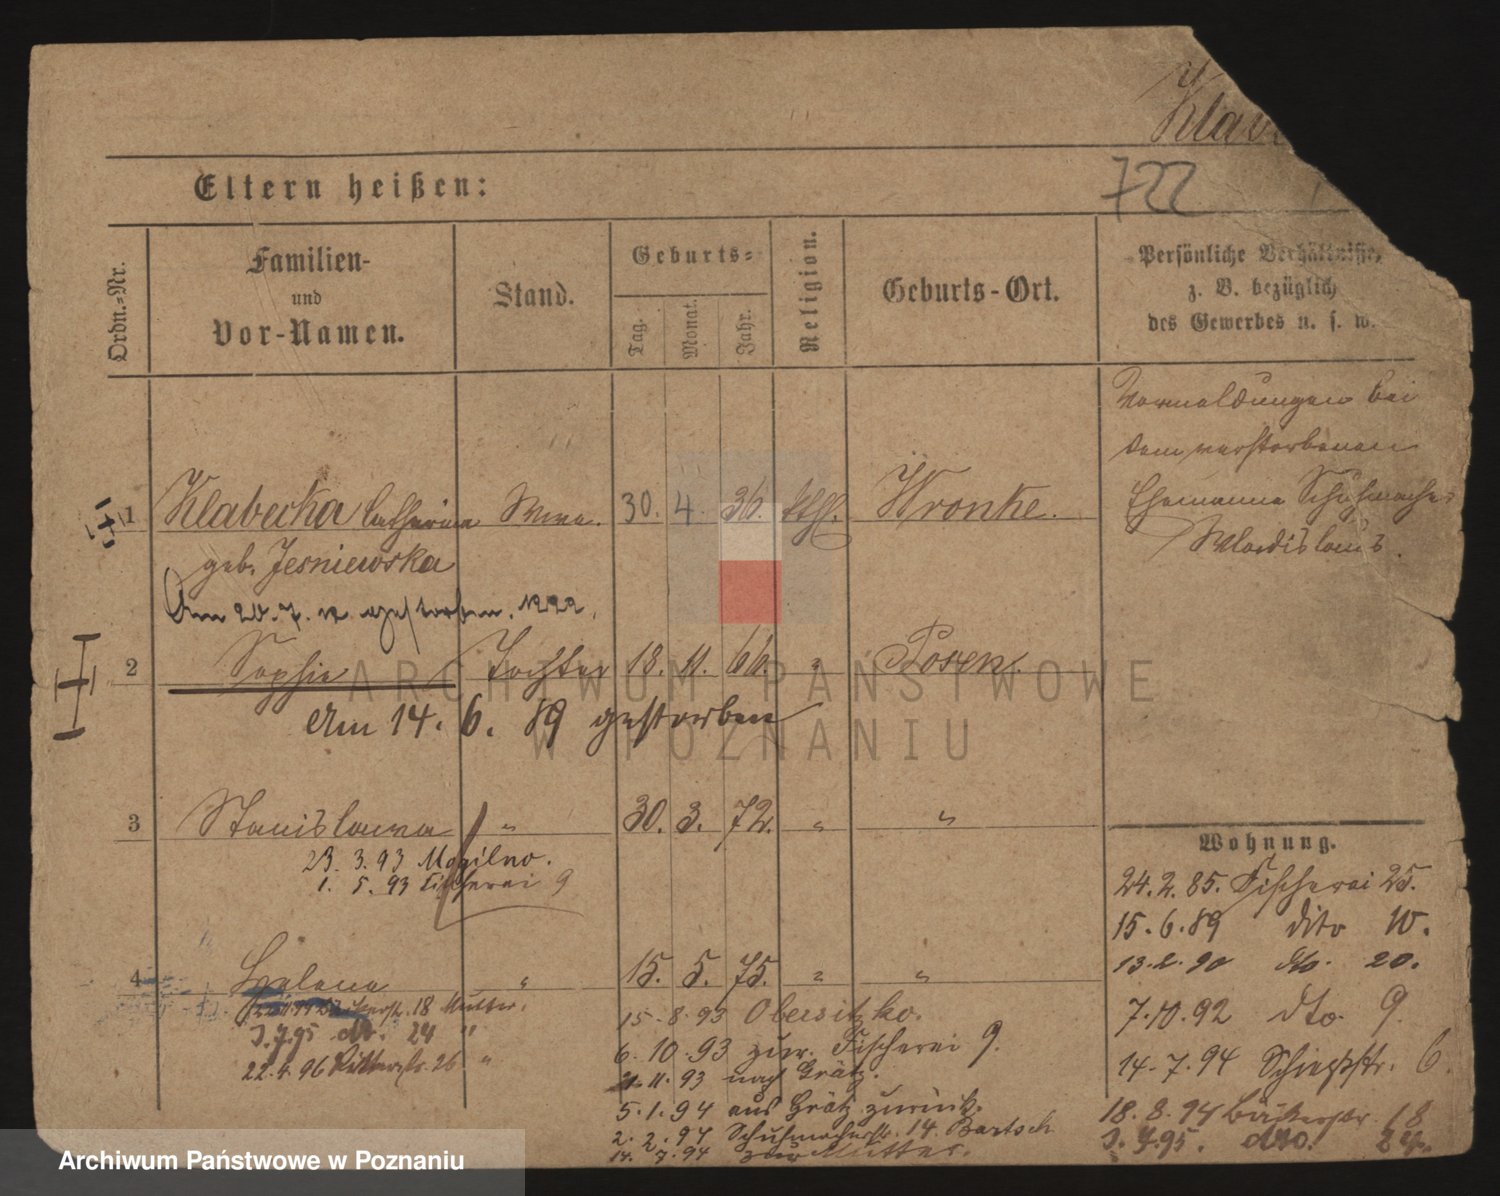 Klab
722
Eltern heißen:
Ordn.-Nr.
Familien-
und
Vor-Namen.
Stand.
Geburts-
Tag.
Monat.
Jahr.
Religion.
Geburts-Ort.
Persönliche Verhältnisse,
z. B. bezüglich
des Gewerbes u. s. w.
Vormeldungen bei
dem verstorbenen
Ehemanne Schuhmacher
Wladislaus.
1 Klabecka Catharina Wwe. 30. 4. 36. kthl. Wronke.
geb. Jesniewska
Am 20. 7. gestorben.
2 Sophie Tochter 18. 11. 66. " Posen.
Am 14. 6. 89 gestorben
3 Stanislawa " 30. 3. 72. " "
23. 3. 93 Mogilno.
1. 5. 93 Fischerei 9
4 Helena " 15. 5. 75. " "
18 Mutter.
3.7.95 do. 24 "
22.4.96 Ritterstr. 26 "
15. 8. 93 Obersitzko.
6. 10. 93 zur. Fischerei 9.
21. 11. 93 nach Grätz.
5. 1. 94 aus Grätz zurück.
2. 2. 94 Schuhmacherstr. 14. Bartsch
14. 7. 94 zur Mutter.
Wohnung.
24. 2. 85. Fischerei 25.
15. 6. 89 dito 10.
13. 2. 90 dto. 20.
7. 10. 92 dto. 9.
14. 7. 94 Schießstr. 6.
18. 8. 94 Bäckerstr 18
3. 7. 95. dto. 24.
ARCHIWUM PAŃSTWOWE
W POZNANIU
Archiwum Państwowe w Poznaniu